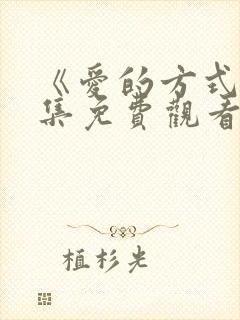 《愛的方式
集免費觀看
植杉光